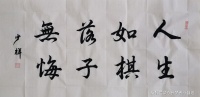 人生
如棋
落子
無悔
少祥